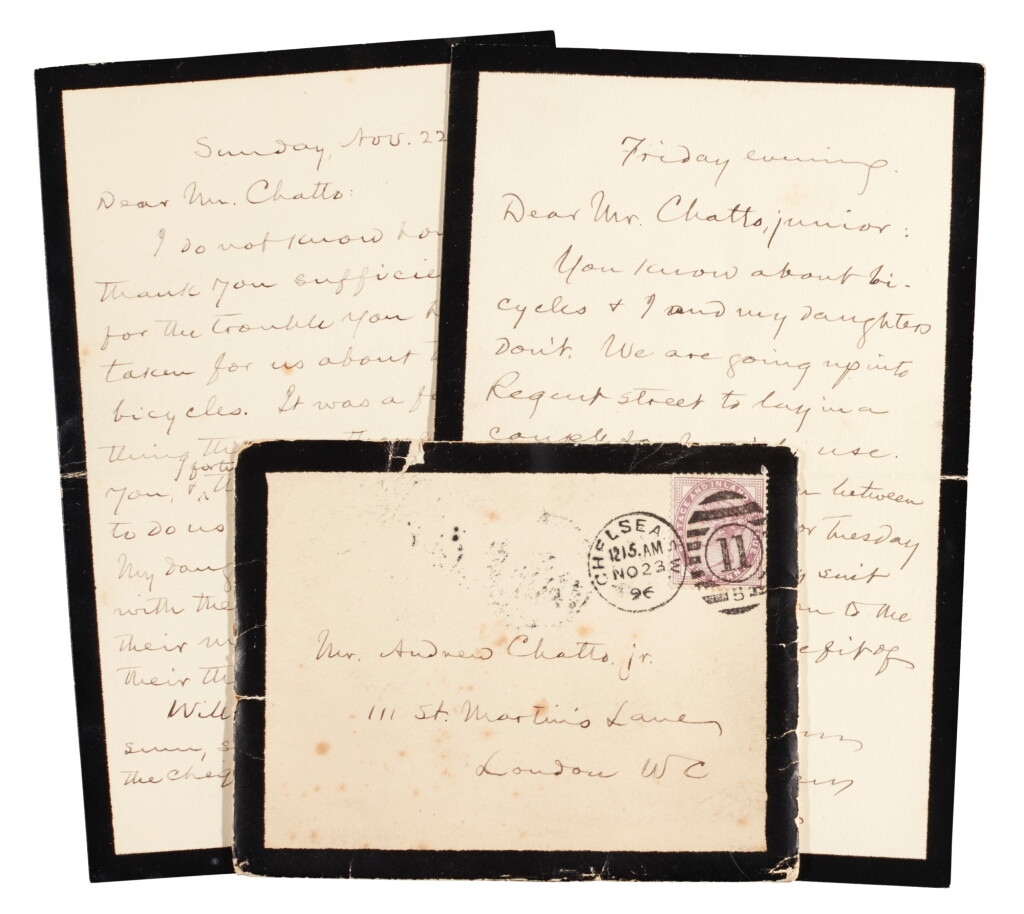 Sunday, Nov. 22
Dear Mr. Chatto:
I do not know how
thank you sufficie
for the trouble you h
taken for us about t
bicycles. It was a f
thing th
you, &
to do us
My daug
with the
their m
their th
Will
sum, s
the cheq
Friday evening.
Dear Mr. Chatto, junior:
You know about bi-
cycles & I and my daughters
don't. We are going up into
Regent street to lay in a
use.
between
or Tuesday
suit
to the
efit of
CHELSEA S.W
12 15. AM
NO 23
96
11
Mr. Andrew Chatto. jr.
111 St. Martin's Lane
London WC